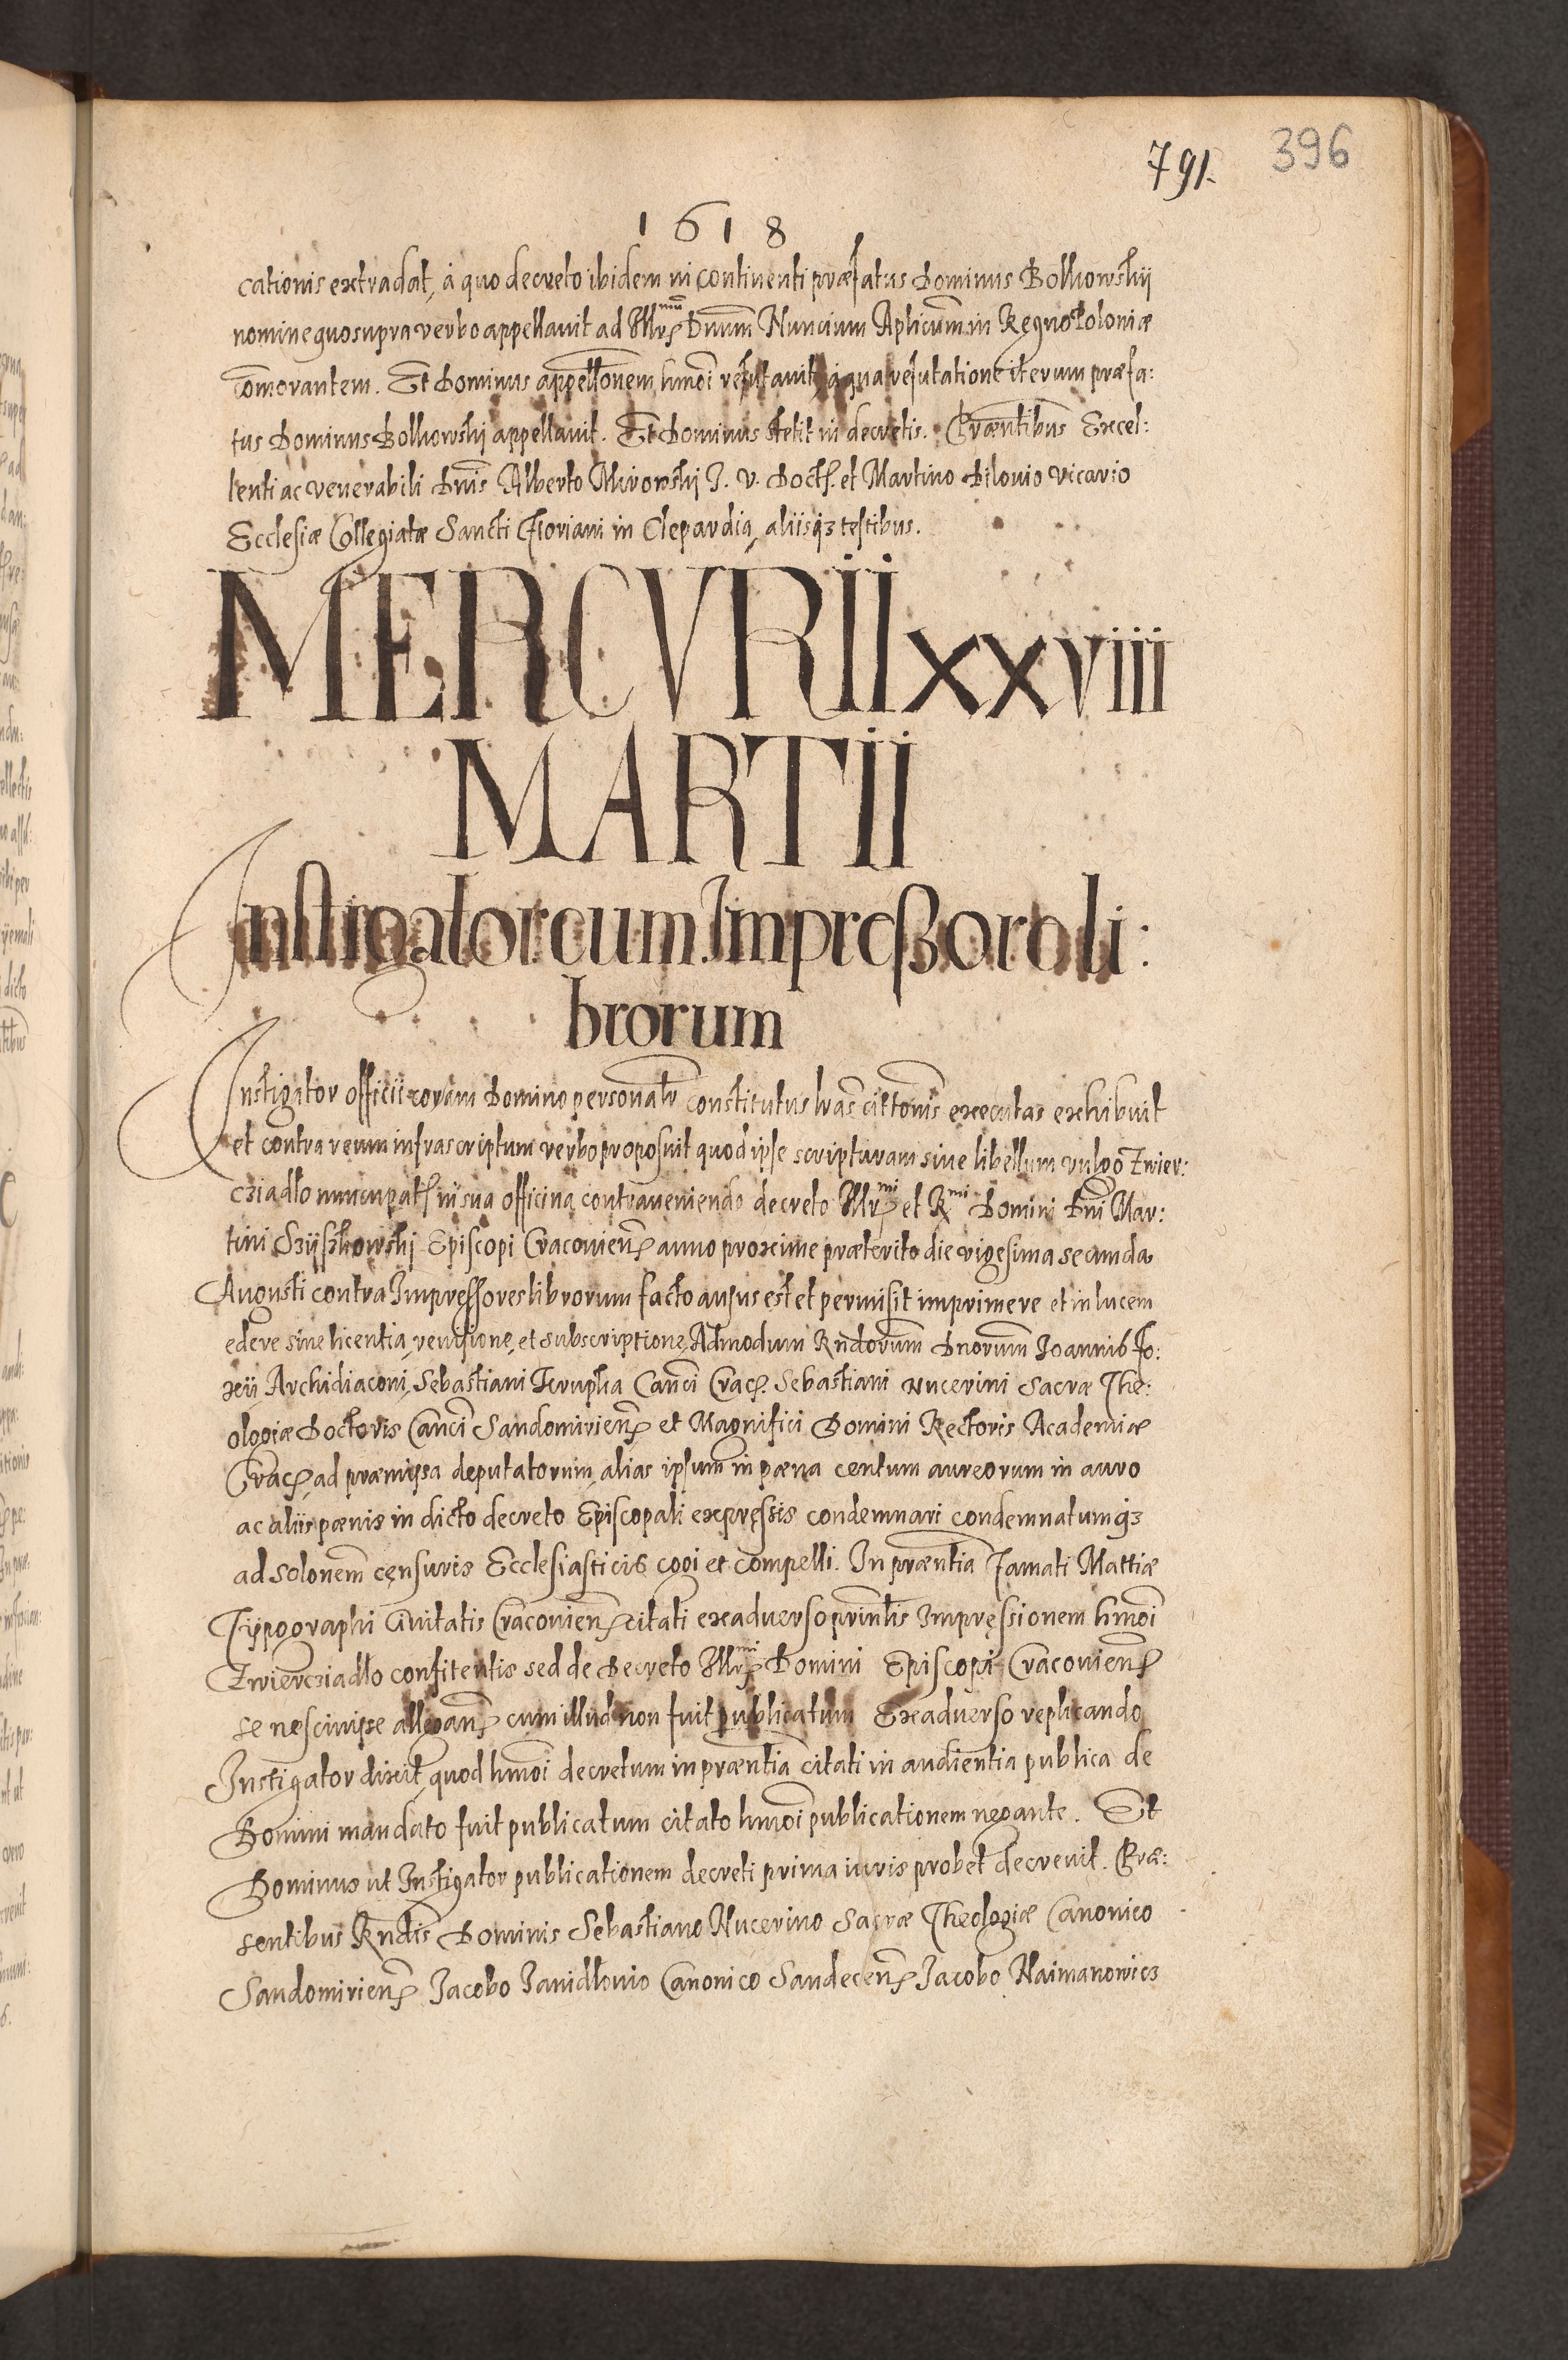 791.
396
1618
cationis extradat, à quo decreto ibidem in continenti præfatus Dominus Bolkowskij
nomine quo supra verbo appellauit ad Illr̃mũ Dnum Nuncium Aplicum in Regno Poloniæ
com̃orantem. Et Dominus appellonem hmoi refutauit, à qua refutatione iterum præfa:
tus Dominus Bolkowskj appellauit. Et Dominus stetit in decretis. Præntibus Excel:
lenti ac venerabili Dnis Alberto Mirowskj J. V. Doct. et Martino Pilouio vicario
Ecclesiæ Collegiatæ Sancti Floriani in Clepardia, aliisqȝ testibus.
MERCVRII XXVIII
MARTII
Instigator cum Impreßoro li:
brorum
Instigator officii coram Domino personalr constitutus lras cittonis executas exhibuit
et contra reum infrascriptum verbo proposuit quod ipse scripturam siue libellum vulgo Zwier:
cziadło nuncupat in sua officina contraueniendo decreto Illr̃mi et Rmi Domini Dni Mar:
tini Szyszkowskj Episcopi Cracouien anno proxime præterito die vigesima secunda
Augusti contra Impressores librorum facto ausus est et permisit imprimere et in lucem
edere sine licentia, reuisione, et subscriptione Admodum Rndorum Dnorum Joannis Fo:
xii Archidiaconi, Sebastiani Krupka Canci Crac. Sebastiani Nucerini Sacræ The:
ologiæ Doctoris Canci Sandomirien et Magnifici Domini Rectoris Academiæ
Crac, ad præmissa deputatorum, alias ipsum in pæna centum aureorum in auro
ac aliis pœnis in dicto decreto Episcopali expressis condemnari condemnatumqȝ
ad solonem censuris Ecclesiasticis cogi et compelli. In præntia Famati Mattiæ
Typographi Ciuitatis Cracouien citati ex aduerso prinlis Impressionem hmoi
Zwiercziadło confitentis sed de Decreto Illr̃mi Domini Episcopi Cracouien
se nesciuisse allegan cum illud non fuit publicatum Ex aduerso replicando
Instigator dixit, quod hmoi decretum in præntia citati in audientia publica de
Domini mandato fuit publicatum citato hmoi publicationem negante. Et
Dominus ut Instigator publicationem decreti prima iuris probet decreuit. Præ:
sentibus Rndis Dominis Sebastiano Nucerino Sacræ Theologiæ Canonico
Sandomirien Jacobo Janidłouio Canonico Sandecen Jacobo Naimanowicz